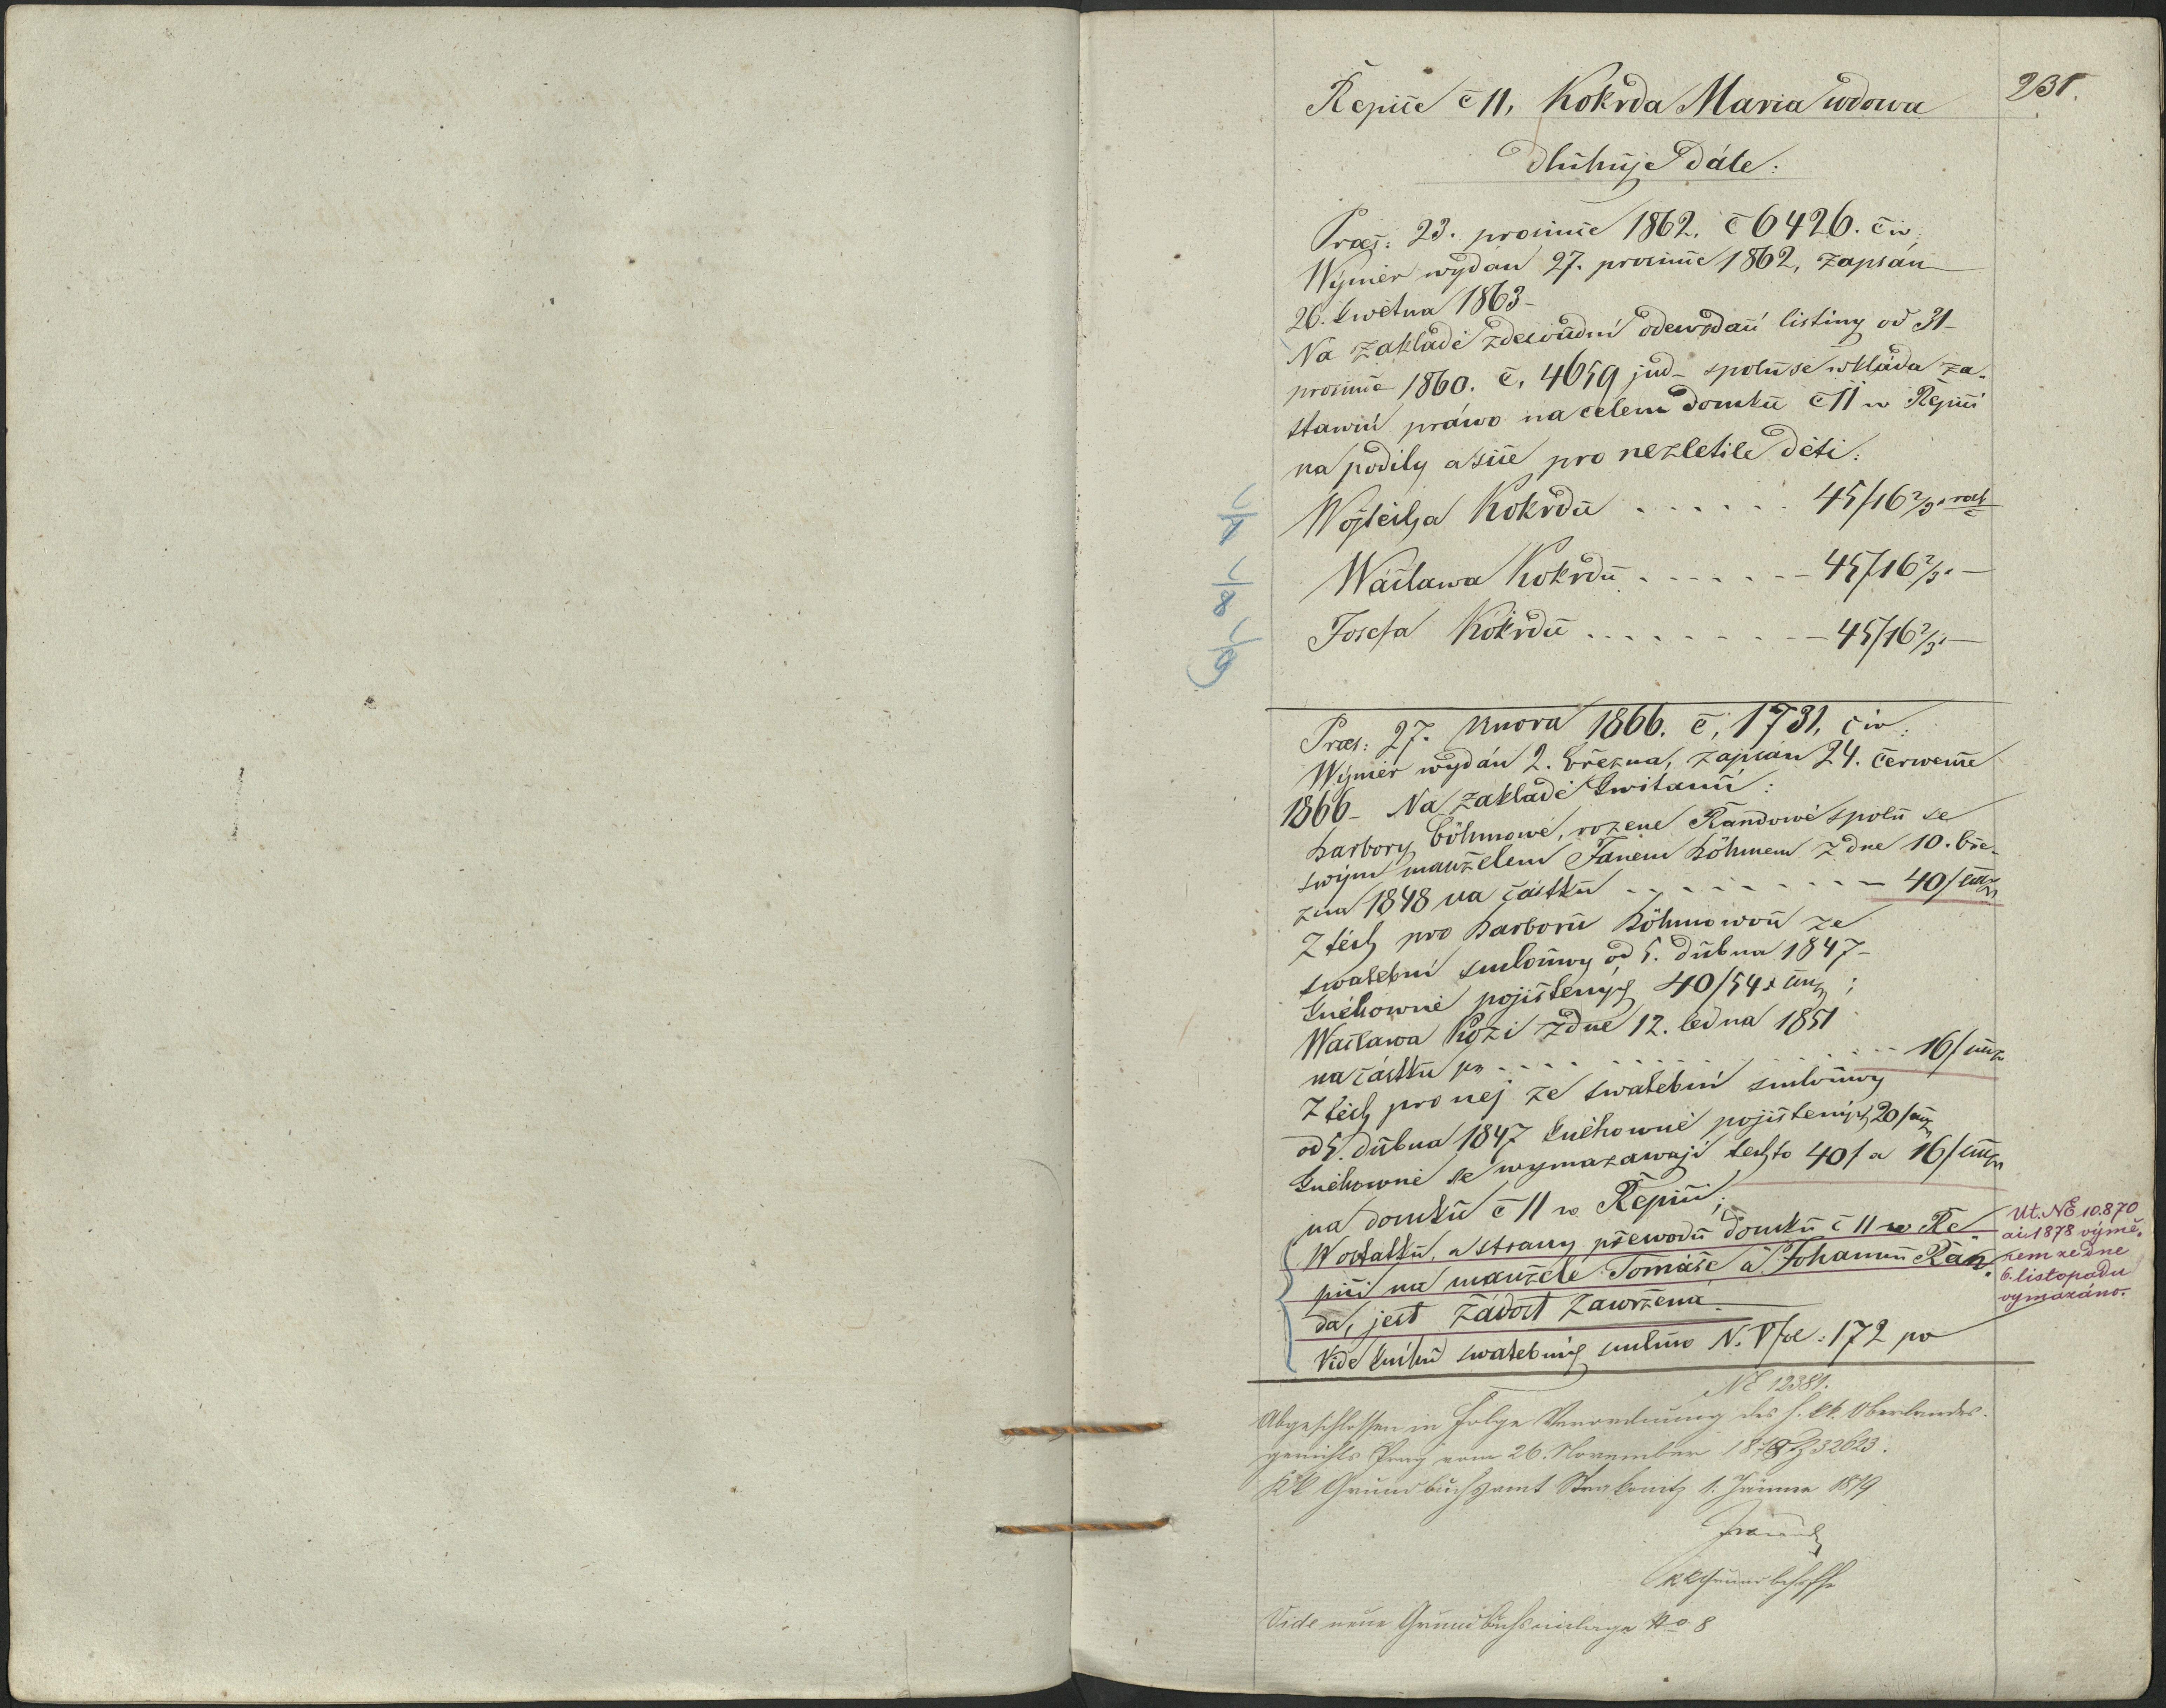 231.
Řepiče č 11, Kokrda Maria wdowa
dluhuje dále:
Praes: 23. prosince 1862. č 6426. civ:
Wýměr wydán 27. prosince 1862, zapsán
26. kwětna 1863-
Na základě zdejsoudní odewzdací listiny od 31-
prosince 1860. č. 4659 jud- spolu se wkláda za-
stawní práwo na celém domku č 11 w Řepici
na podíly a sice pro nezletile děti:
7 Wojtěcha Kokrdu . . . . . . 45/16 2/3 x rak č
8 Wáclawa Kokrdu . . . . . . 45/16 2/3 x —
9 Josefa Kokrdu . . . . . . 45/16 2/3 x —
Praes: 27. unora 1866. č, 1731, civ:
Wýměr wydán 2. března, zapsán 24. června
1866- Na základě kwitancí:
Barbory Böhmowé, rozené Randowé spolu se
swým manželem Janem Böhmem z dne 10. bře-
zna 1848 na částku . . . . . . 40/ cmz
Z těch pro Barboru Böhmowou ze
swatební smlouwy od 5. dubna 1847-
knihowně pojištěných 40/54 x cmz;
Wáclawa Kozi z dne 12. ledna 1851
na částku pr . . . . . . 16/ cmz
Z těch pro něj ze swatební smlouwy
od 5. dubna 1847 knihowně pojištěných 20/ cmz
knihowně se wymazawají těchto 40/ a 16/ cmz
na domku č 11 w Řepici;
W ostatku, a strany přewodu domku č 11 w Ře
pici na manžele Tomáše a Johannu Rán-
da, jest žádost zawržena.
Vide knihu swatebních smluw N. V fol: 172 po
Ut. NE 10.870
ai 1878 výmě-
rem ze dne
6. listopadu
vymazáno.
NE 12381.
Abgeschlossen in Folge Verordnung des h. kk. Oberlandes-
gerichts Prag vom 26. November 1878 Z 32623.
KK Grundbuchsamt Strakonitz 1. Jänner 1879
Vide neue Grundbuchseinlage No 8